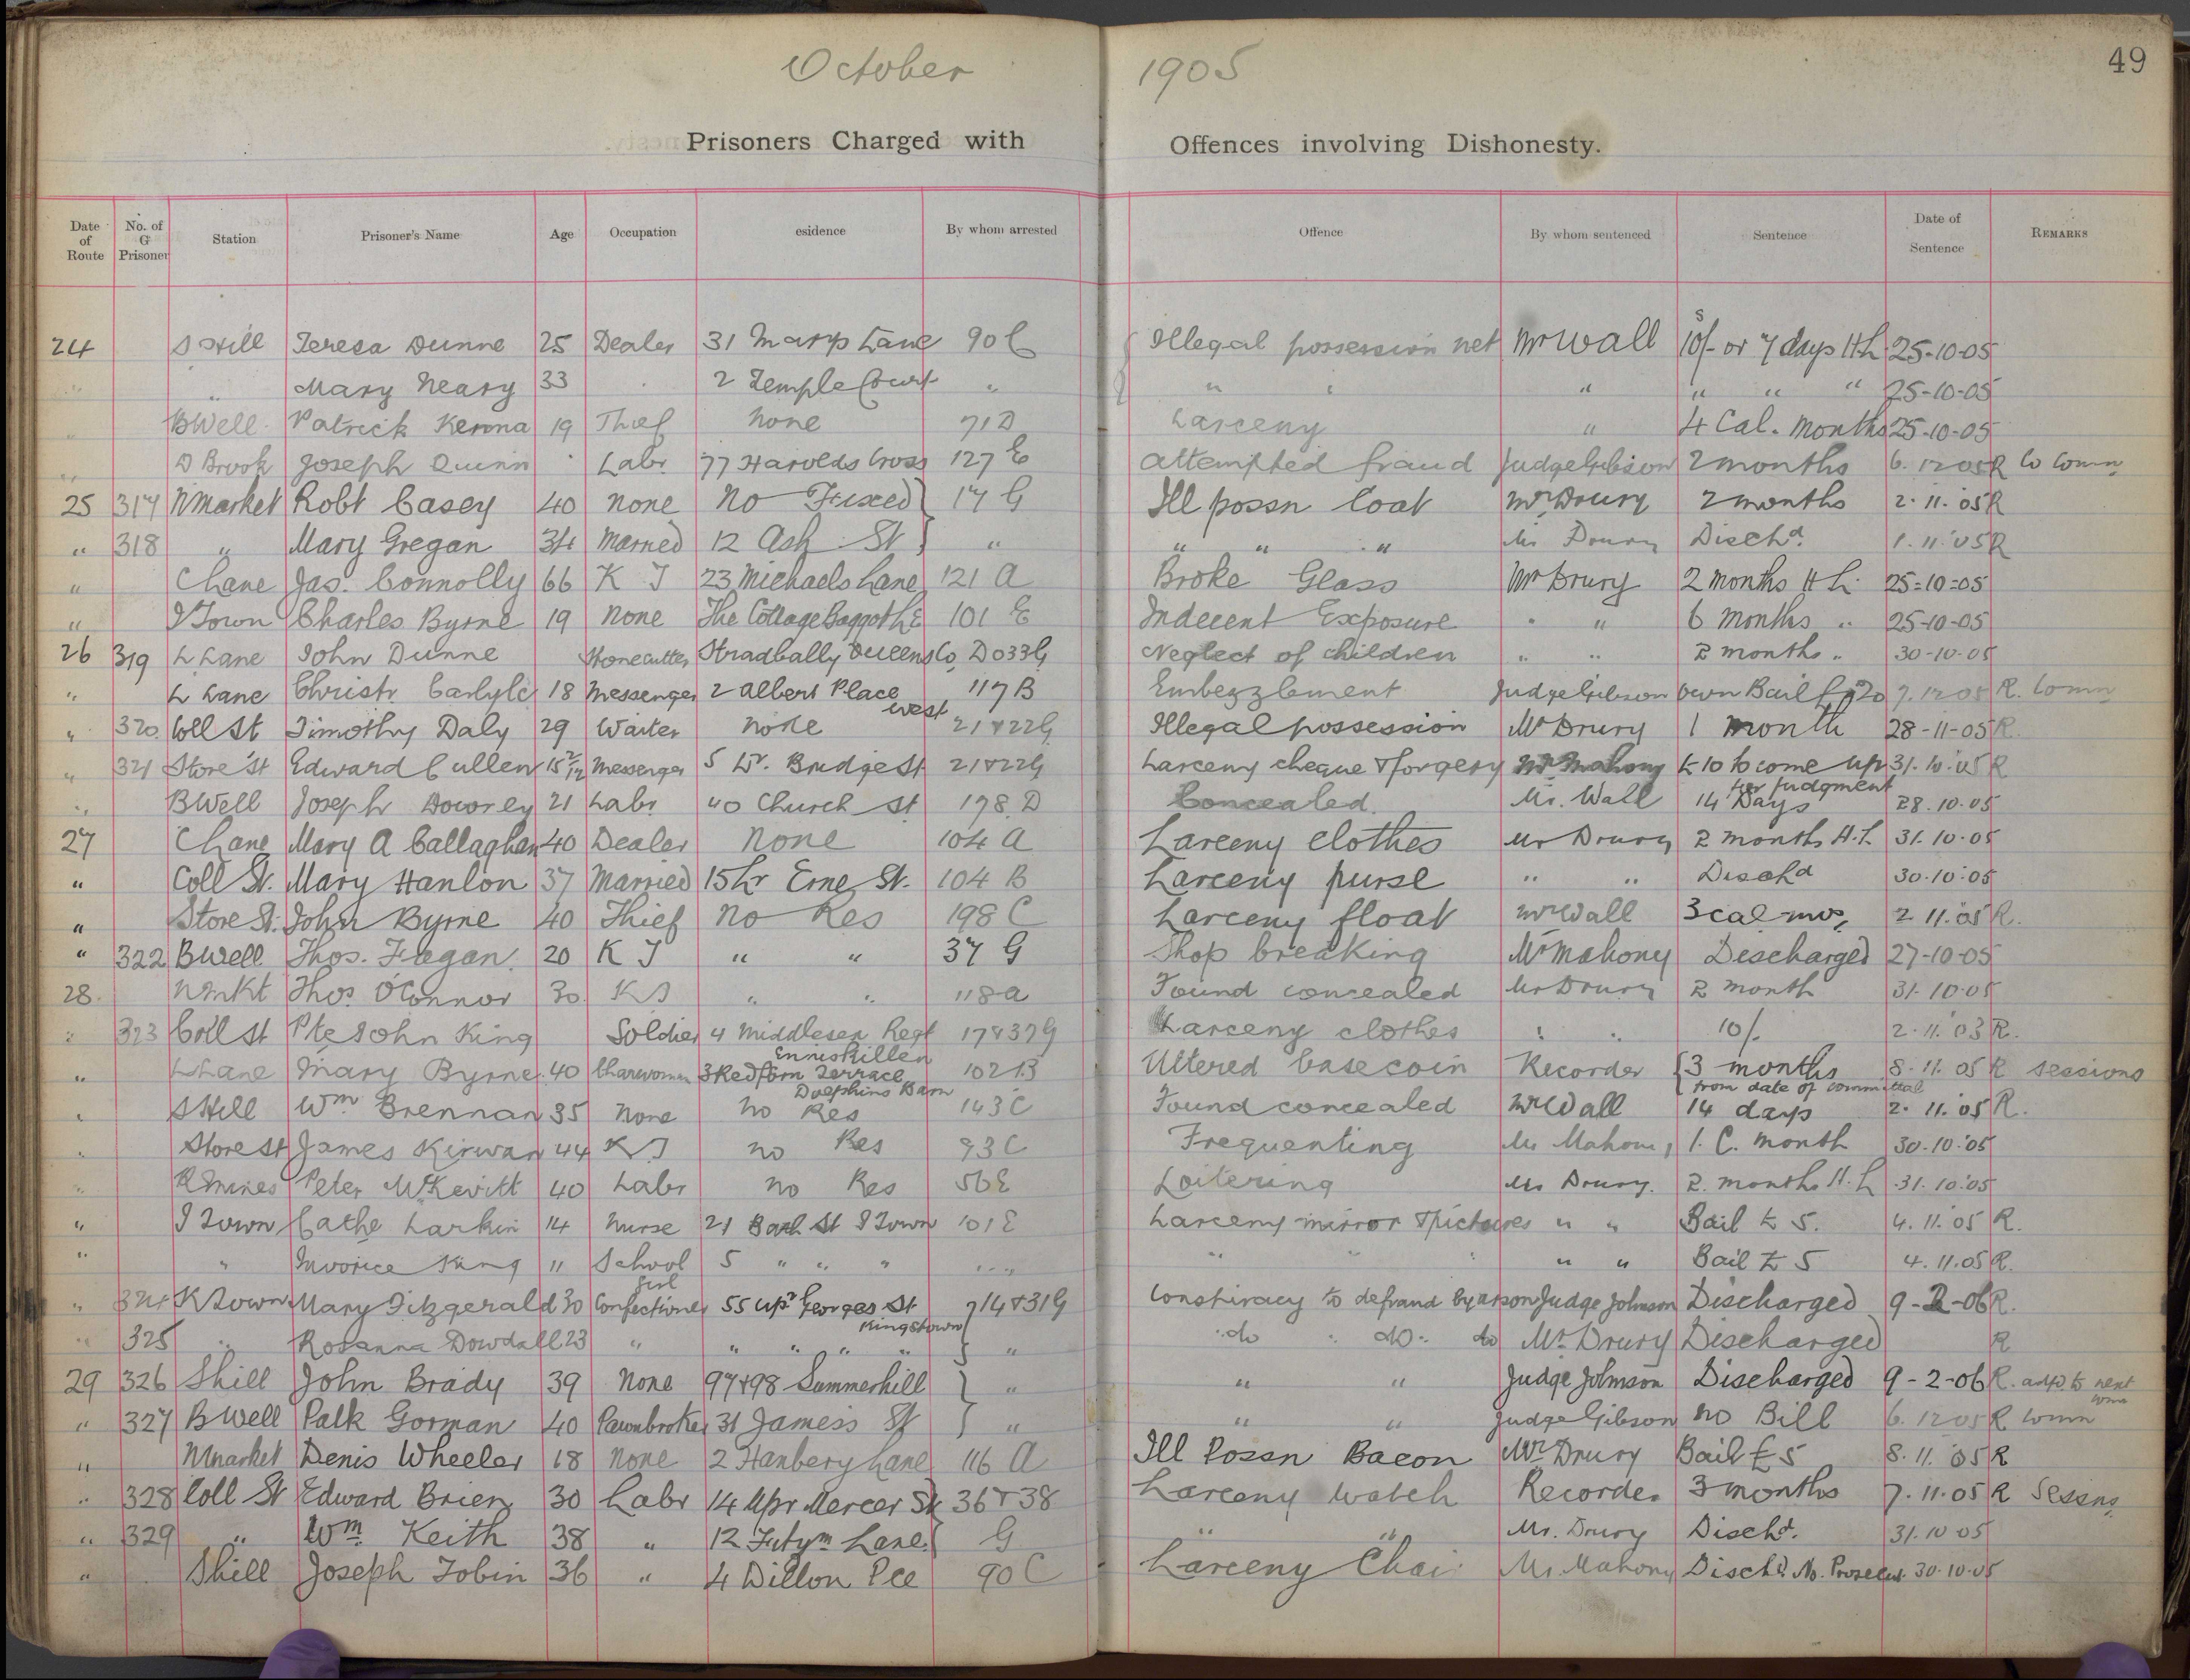 October 1905
49
Prisoners Charged with Offences involving Dishonesty.
Date of Route No. of G Prisoner Station Prisoner's Name Age Occupation esidence By whom arrested Offence By whom sentenced Sentence Date of Sentence Remarks
24 S Hill Teresa Dunne 25 Dealer 31 Marys Lane 90 C Illegal possession net Mr Wall 10/- or 7 days H L 25-10-05
" " Mary Neary 33 2 Temple Court " " " " " " " 25-10-05
" BWell Patrick Kenna 19 Thief None 71 D Larceny " 4 Cal. Months 25-10-05
" D Brook Joseph Quinn Labr 77 Harolds Cross 127 E Attempted fraud Judge Gibson 2 months 6.12 05 R Co Comn
25 317 N Market Robt Casey 40 None No Fixed 17 G Ill possn Coat Mr Drury 2 months 2.11.'05 R
" 318 " Mary Gregan 34 Married 12 Ash St " " " " Mr Drury Dischd. 1.11.'05 R
" C Lane Jas. Connolly 66 K T 23 Michaels Lane 121 A Broke Glass Mr Drury 2 months H L 25=10=05
" I Town Charles Byrne 19 None The Cottage Baggot L 101 E Indecent Exposure " " 6 Months " 25-10-05
26 319 L Lane John Dunne Stonecutter Stradbally Queens Co. DO 33 G Neglect of children " " 2 months " 30-10-05
" L Lane Christr Carlyle 18 Messenger 2 Albert Place West 117 B Embezzlement Judge Gibson Own Bail £20 7.12 05 R. Comn
" 320 Coll St Timothy Daly 29 Waiter None 21 & 22 G Illegal possession Mr Drury 1 month 28-11-05 R.
" 321 Store St Edward Cullen 15 7/12 Messenger 5 Lr. Bridge St 21 & 22 G Larceny cheque & forgery Mr Mahony £10 to come up for Judgment 31.10.'05 R
" BWell Joseph Dowrey 21 Labr 40 Church St 178 D Concealed. Mr. Wall 14 Days 28.10.05
27 C Lane Mary A Callaghan 40 Dealer None 104 A Larceny clothes Mr Drury 2 months H.L 31.10.05
" Coll St. Mary Hanlon 37 Married 15 Lr Erne St. 104 B Larceny purse " " Dischd 30.10.05
" Store St. John Byrne 40 Thief No Res 198 C Larceny float Mr Wall 3 cal mos, 2 11.'05 R.
" 322 BWell Thos. Fagan 20 K T " " 37 G Shop breaking Mr Mahony Discharged 27-10-05
28. N Mkt Thos O'Connor 30 K T " " 118 A Found concealed Mr Drury 2 month 31.10.05
" 323 Coll St Pte John King Soldier 4 Middlesex Regt Enniskillen 17 & 37 G Larceny clothes " " 10/. 2.11.'05 R.
" L Lane Mary Byrne 40 Charwoman 3 Redfern Terrace Dolphins Barn 102 B Uttered base coin Recorder 3 months from date of committal 8.11.05 R sessions
" S Hill Wm Brennan 35 None No Res 143 C Found concealed Mr Wall 14 days 2.11.'05 R.
" Store St James Kirwan 44 K T no Res 93 C Frequenting Mr Mahony 1. C. month 30.10.'05
" R Mines Peter McKevitt 40 Labr no Res 56 E Loitering Mr Drury. 2. months H.L 31.10'05
" I Town Cathe Larkin 14 Nurse 21 Bath St I Town 101 E Larceny mirror & pictures " " Bail £5. 4.11.'05 R.
" " King 11 School Girl 5 " " " " " " " Bail £5 4.11.05 R.
" 324 K Town Mary Fitzgerald 30 Confectioner 55 Upr Georges St Kingstown 14 & 31 G Conspiracy to defraud by arson Judge Johnson Discharged 9-2-06 R.
" 325 " Rosanna Dowdall 23 " " " " " " do do do Mr Drury Discharged R
29 326 S hill John Brady 39 None 97 & 98 Summerhill " " " Judge Johnson Discharged 9-2-06 R. adjd to next Comn
" 327 B Well Patk Gorman 40 Pawnbroker 31 James's St " " " Judge Gibson No Bill 6.12 05 R Comn
" N Market Denis Wheeler 18 None 2 Hanbery Lane 116 A Ill Possn Bacon Mr Drury Bail £5 8.11.'05 R
" 328 Coll St Edward Brien 30 Labr 14 Upr Mercer St 36 & 38 Larceny watch Recorder 3 months 7.11.05 R Sessns,
" 329 " Wm Keith 38 " 12 Lane G " " Mr. Drury Dischd. 31.10 05
" S hill Joseph Tobin 36 " 4 Dillon Pce 90 C Larceny Chai Mr. Mahony Dischd. No. Prosecut 30.10.05